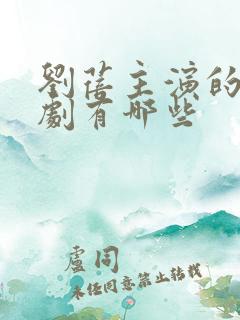 劉蓓主演的
劇有哪些
盧同
未经同意禁止转载